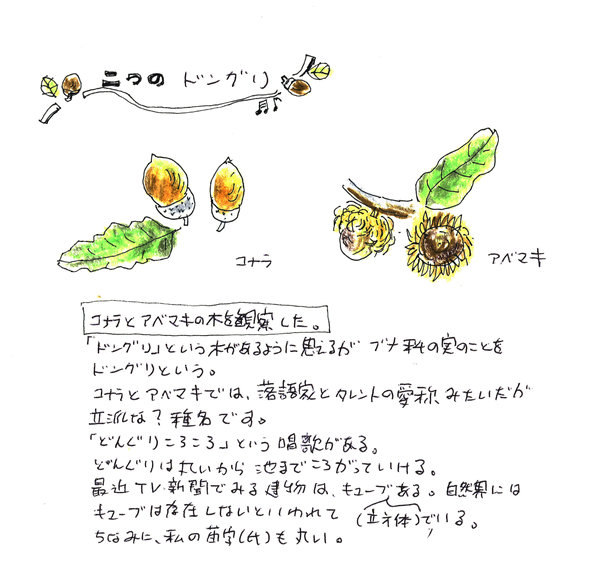 二つの ドングリ
コナラ
アベマキ
コナラとアベマキの木を観察した。
「ドングリ」という木があるように思えるが ブナ科の実のことを
ドングリという。
コナラとアベマキでは、落語家とタレントの愛称みたいだが
立派な？種名です。
「どんぐりころころ」という唱歌がある。
どんぐりは丸いから 池までころがっていける。
最近 TV・新聞でみる建物は、キューブである。自然界には
キューブは存在しないといわれて (立方体) いる。
ちなみに、私の苗字(氏)も丸い。